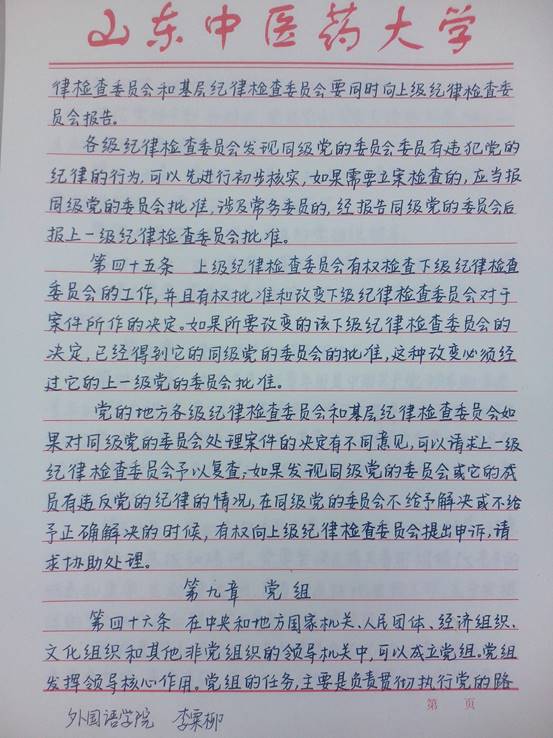 山东中医药大学
律检查委员会和基层纪律检查委员会要同时向上级纪律检查委
员会报告。
各级纪律检查委员会发现同级党的委员会委员有违犯党的
纪律的行为,可以先进行初步核实,如果需要立案检查的,应当报
同级党的委员会批准,涉及常务委员的,经报告同级党的委员会后
报上一级纪律检查委员会批准。
第四十五条 上级纪律检查委员会有权检查下级纪律检查
委员会的工作,并且有权批准和改变下级纪律检查委员会对于
案件所作的决定。如果所要改变的该下级纪律检查委员会的
决定,已经得到它的同级党的委员会的批准,这种改变必须经
过它的上一级党的委员会批准。
党的地方各级纪律检查委员会和基层纪律检查委员会如
果对同级党的委员会处理案件的决定有不同意见,可以请求上一级
纪律检查委员会予以复查;如果发现同级党的委员会或它的成
员有违反党的纪律的情况,在同级党的委员会不给予解决或不给
予正确解决的时候,有权向上级纪律检查委员会提出申诉,请
求协助处理。
第九章 党组
第四十六条 在中央和地方国家机关、人民团体、经济组织、
文化组织和其他非党组织的领导机关中,可以成立党组。党组
发挥领导核心作用。党组的任务,主要是负责贯彻执行党的路
第 页
外国语学院 李栗柳